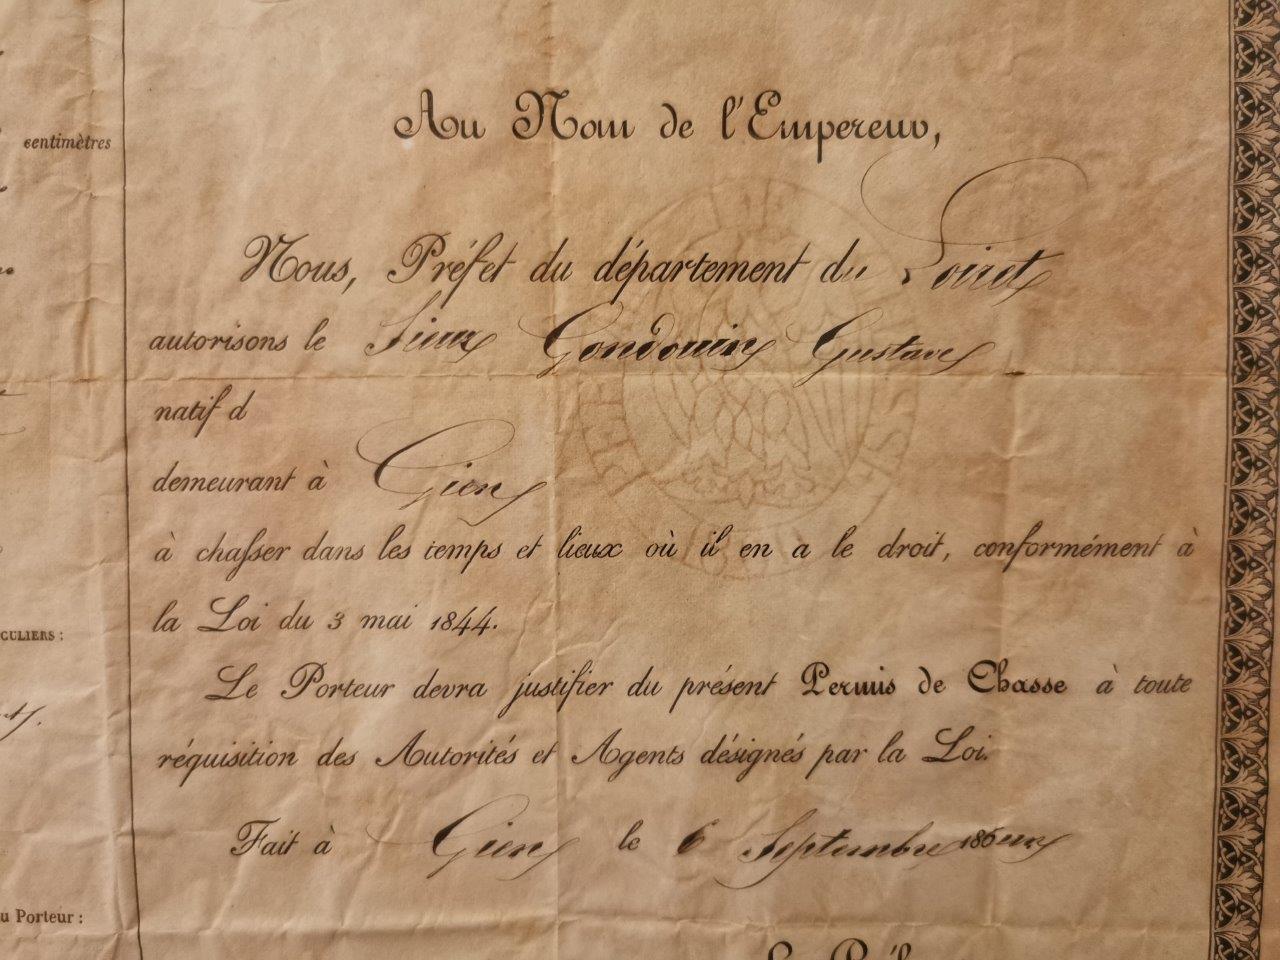 centimètres
Au Nom de l'Empereur,
Nous, Préfet du département du Loiret
autorisons le Sieur Gondouin Gustave
natif d
demeurant à Gien
à chasser dans les temps et lieux où il en a le droit, conformément à
la Loi du 3 mai 1844.
CULIERS :
Le Porteur devra justifier du présent Permis de Chasse à toute
réquisition des Autorités et Agents désignés par la Loi.
Fait à Gien le 6 Septembre 186un
u Porteur :